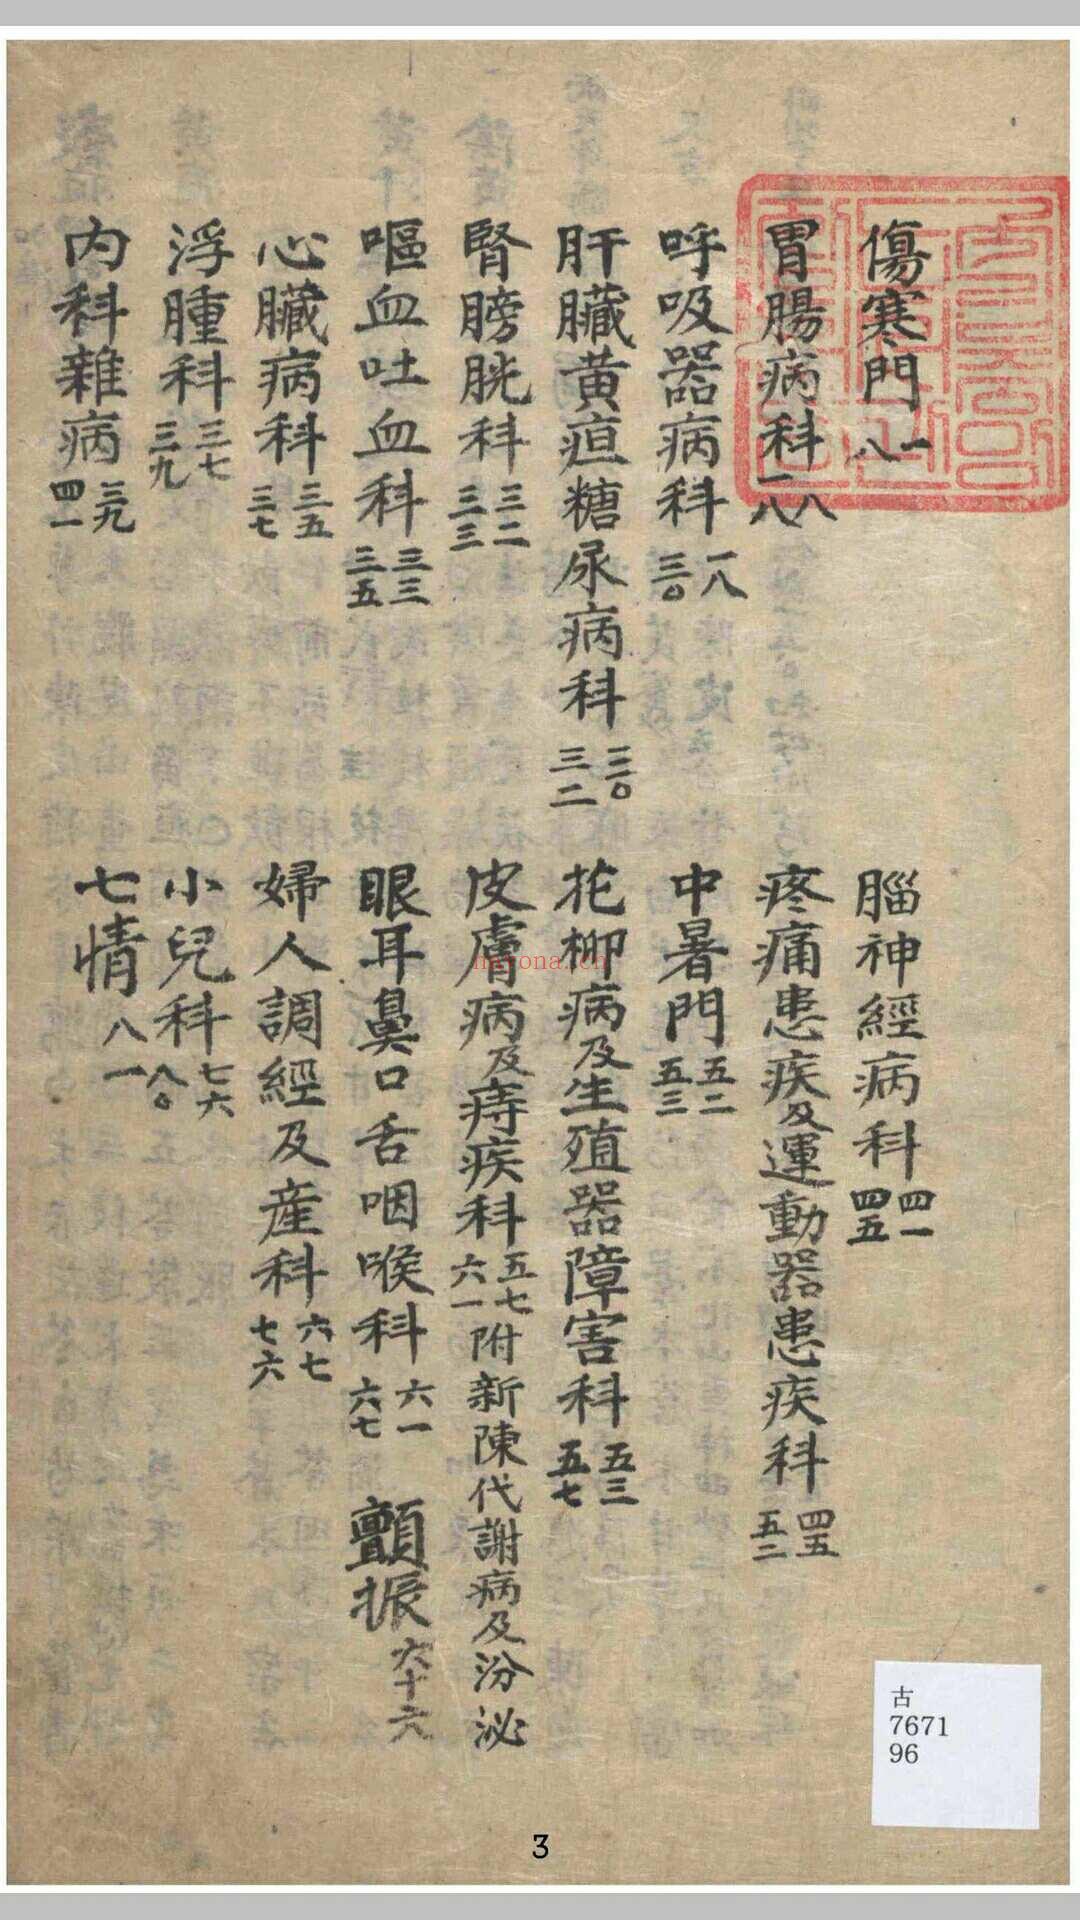 傷寒門 一 八
胃腸病科 八 一八
呼吸器病科 一八 三〇
肝臟黃疸糖尿病科 三〇 三二
腎膀胱科 三二 三三
嘔血吐血科 三三 三五
心臟病科 三五 三七
浮腫科 三七 三九
內科雜病 三九 四一
腦神經病科 四一 四五
疼痛患疾及運動器患疾科 四五 五二
中暑門 五二 五三
花柳病及生殖器障害科 五三 五七
皮膚病及痔疾科 五七 六一 附新陳代謝病及汾泌
眼耳鼻口舌咽喉科 六一 六七 顫振 六十六
婦人調經及産科 六七 七六
小兒科 七六 八〇
七情 八一
古
7671
96
myona.cn
3